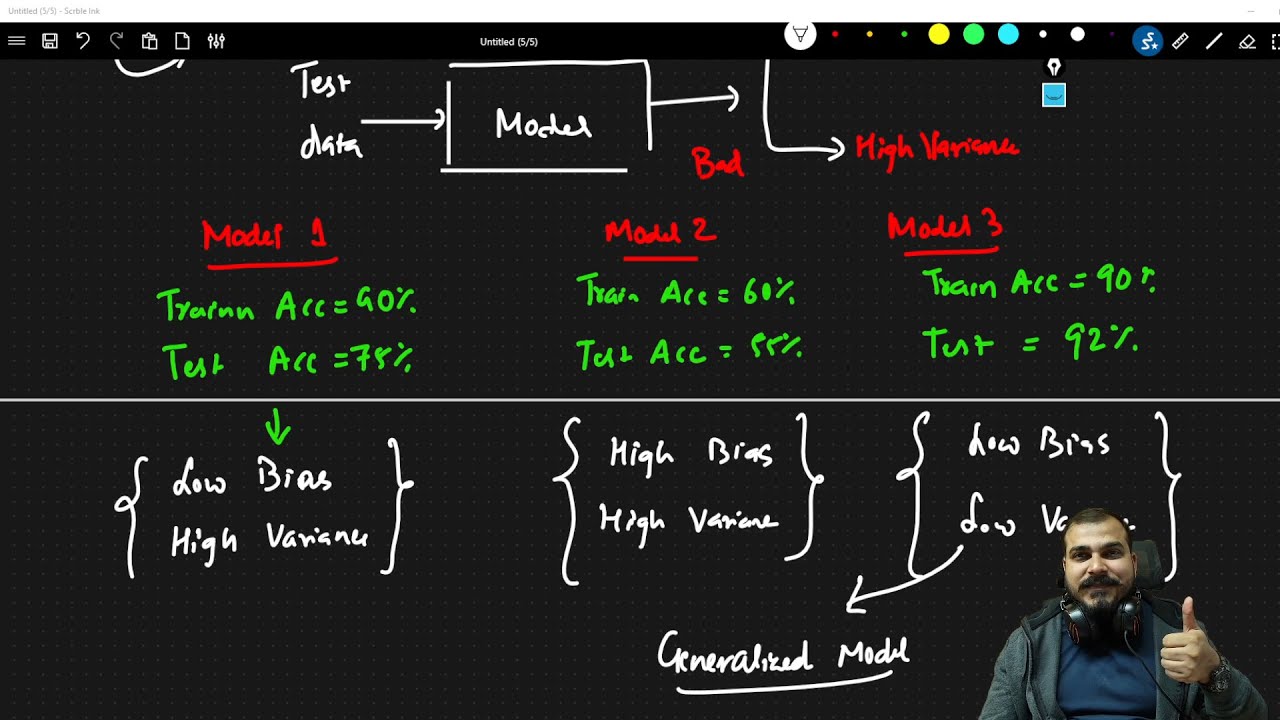 Untitled (5/5) - Scrble Ink
Untitled (5/5)
Test
data
Model
Bad
High Variance
Model 1
Trainn Acc = 90%
Test Acc = 75%
Low Bias
High Variance
Model 2
Train Acc = 60%
Test Acc = 55%
High Bias
High Variane
Model 3
Train Acc = 90%
Test = 92%
Low Bias
Low
Generalized Model